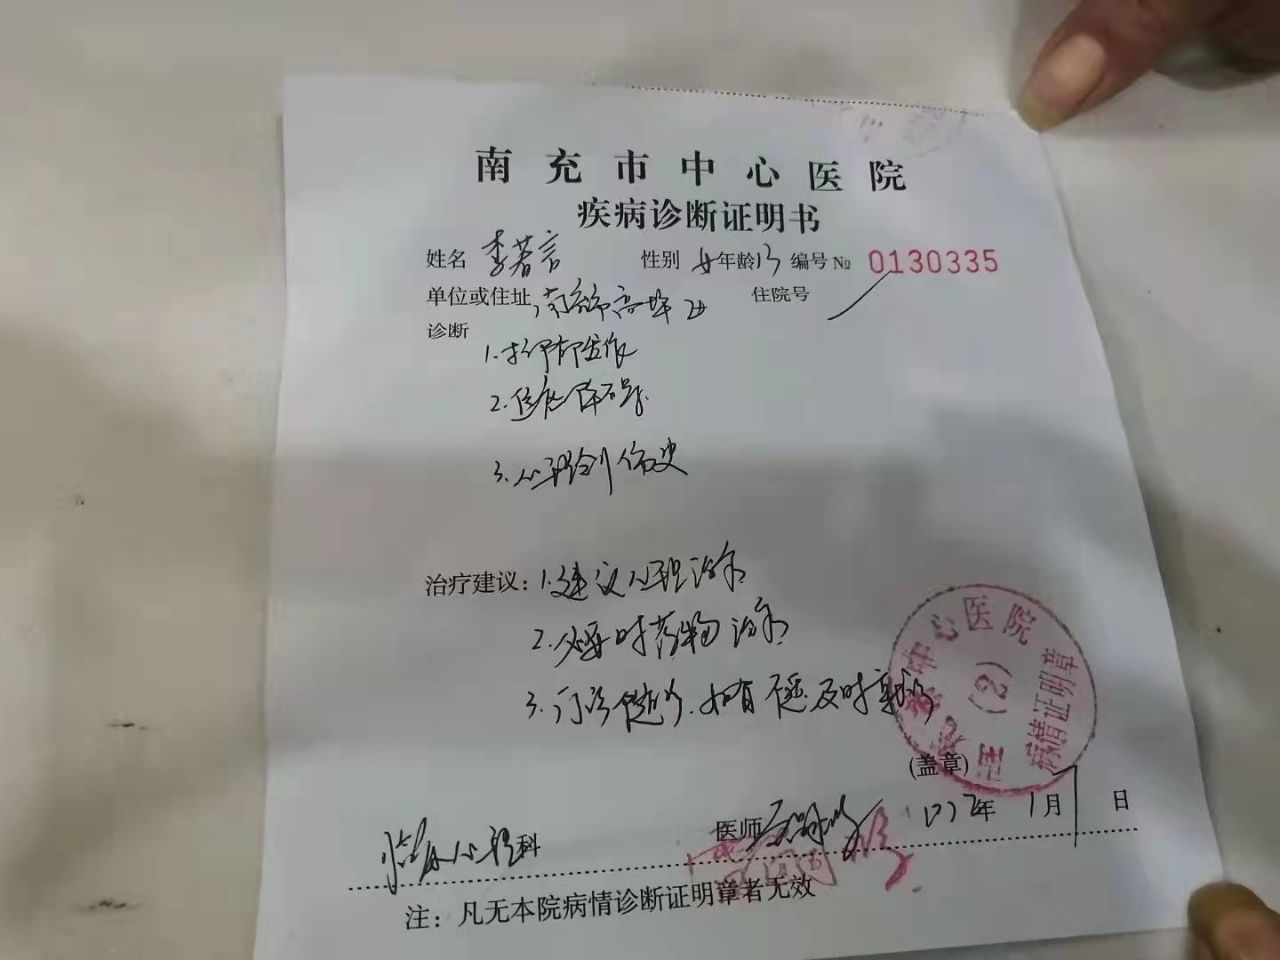 南充市中心医院
疾病诊断证明书
姓名 李若言 性别 女 年龄 13 编号 № 0130335
单位或住址 南充市高坪区 住院号
诊断
1.抑郁发作
2.焦虑障碍
3.心理创伤史
治疗建议：1.建议心理治疗
2.必要时药物治疗
3.门诊随诊.如有不适及时
中心医院
(2)
病情证明章
(盖章)
临床心理科 医师 年 1月 7日
注：凡无本院病情诊断证明章者无效